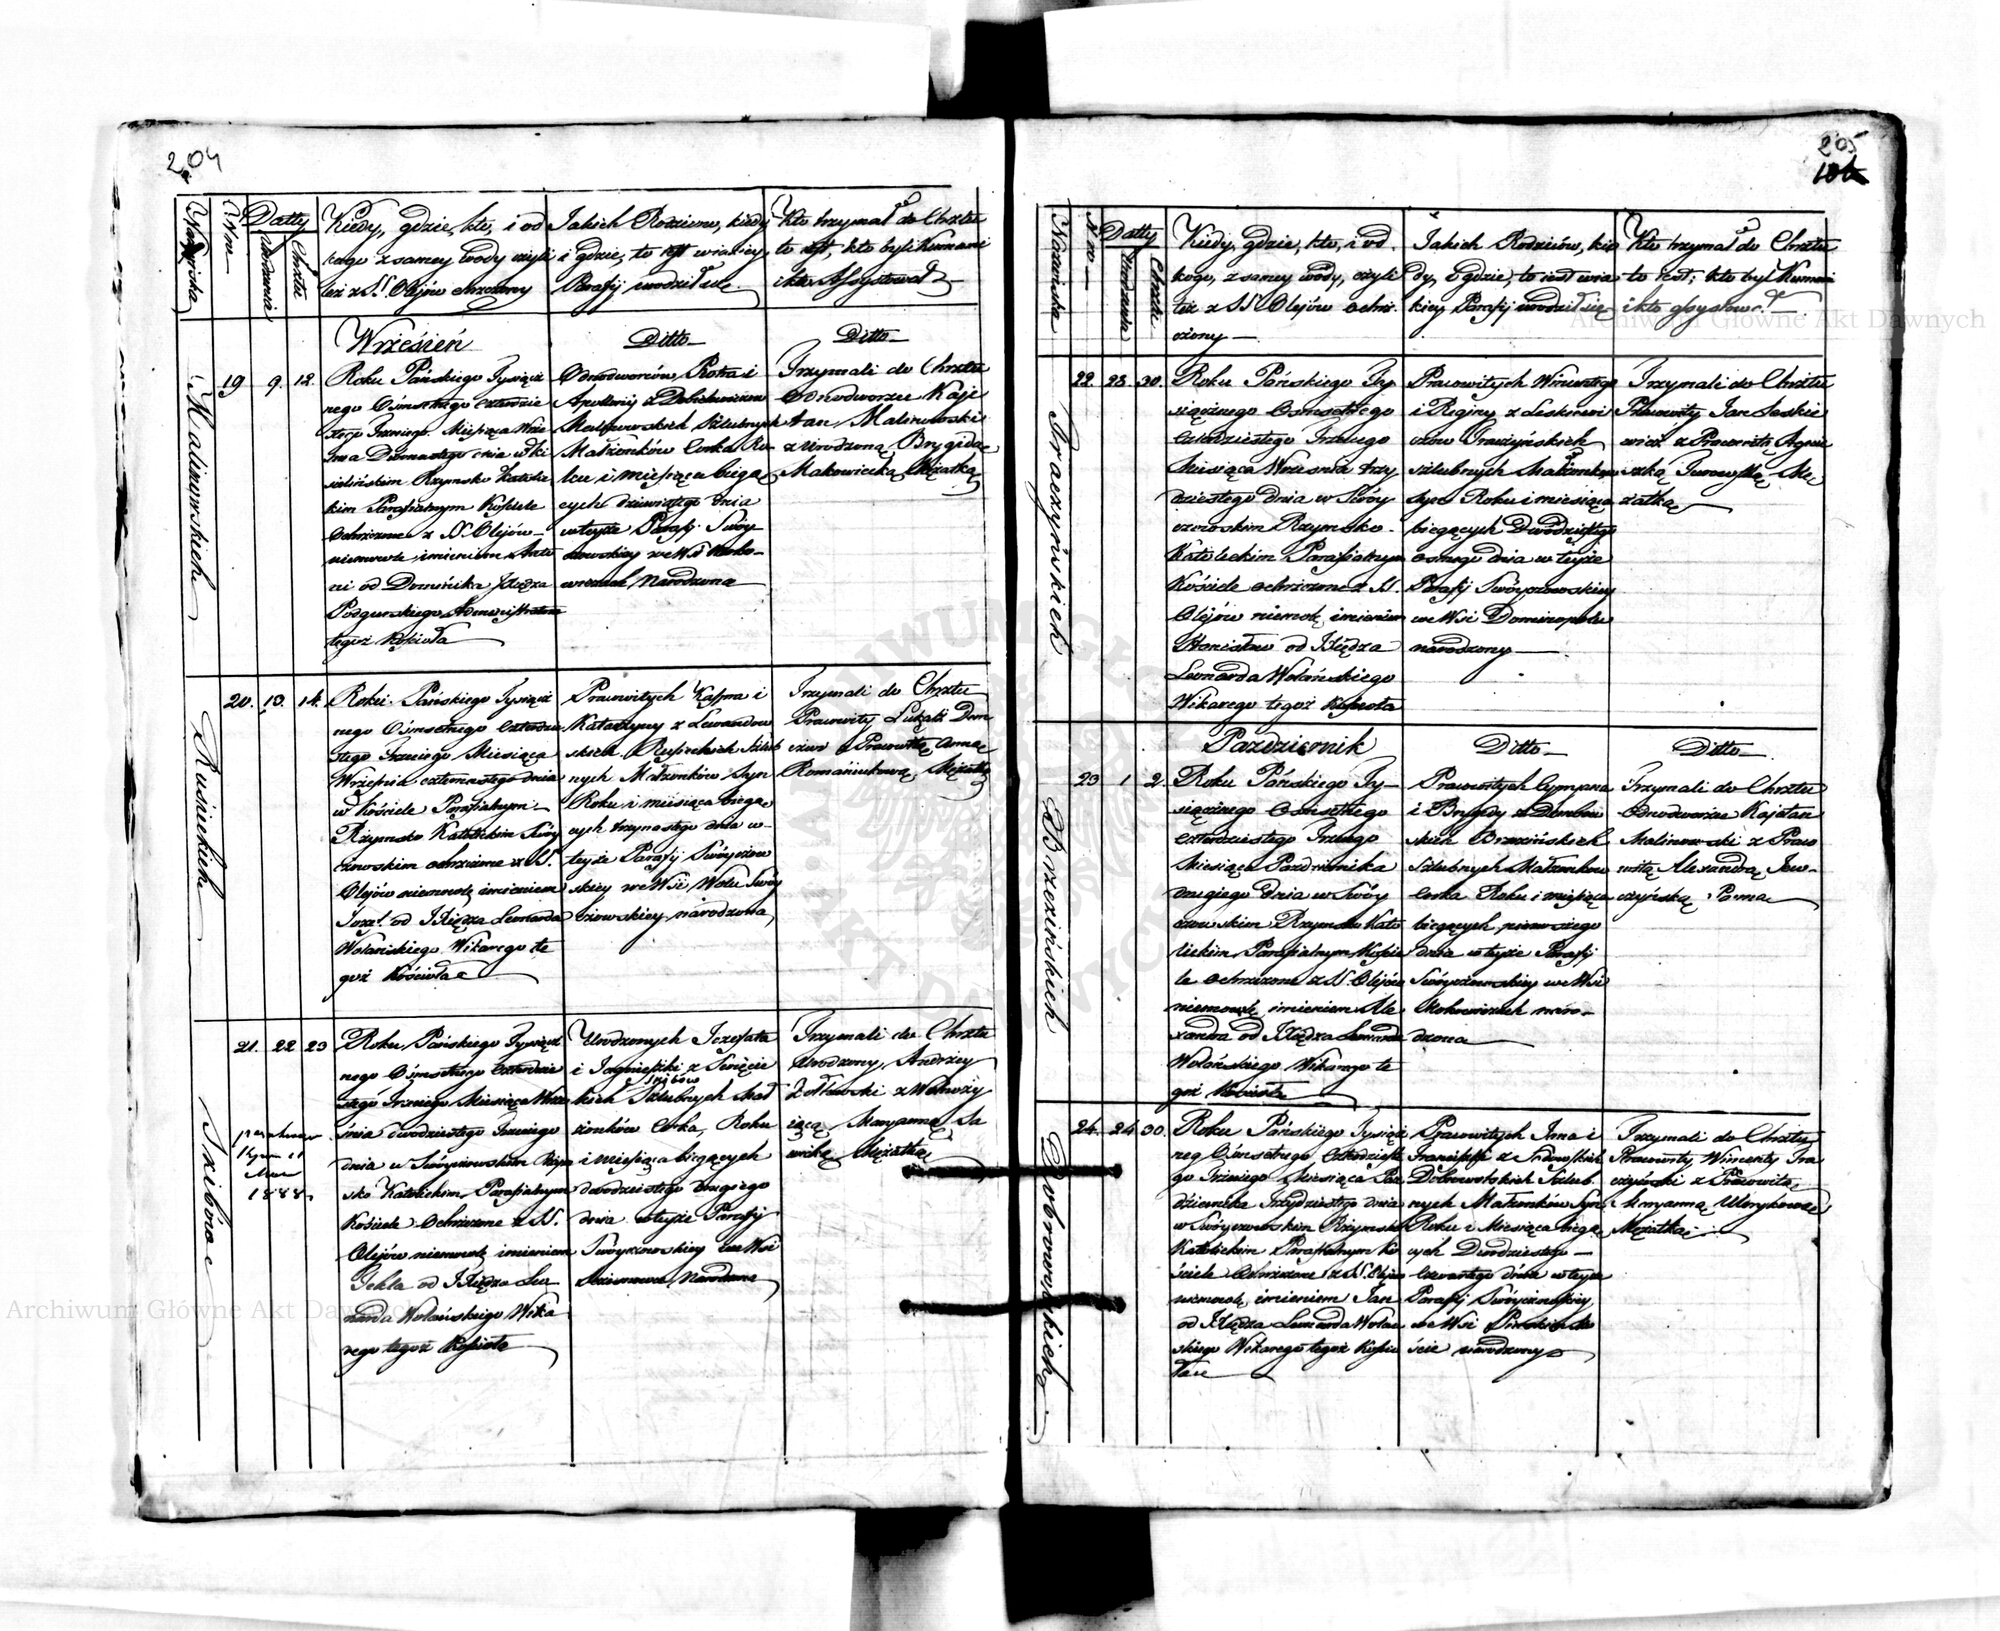 204
Nazwiska
Nro
Datty
Urodzenia
Chrztu
Kiedy, gdzie, kto, i od
kogo z samey wody czyli
też z S.S. Olejów chrzczony
Jakich Rodziców, kiedy
i gdzie, to jest w iakiey
Parafij urodził się
Kto trzymał do Chrztu
to jest, kto byli Kumami
i kto Assystował
Malinowskich
19
9.
12.
Wrzesień
Roku Pańskiego Tysiącz
nego Osmsetnego czterdzie
stego Trzeciego Miesiąca Wrze
śnia Dwunastego dnia w
Rzymsko Katolic
kim Parafialnym Kościele
Ochrzczone z S.S. Olejów
niemowle imieniem Anto
ni od Dominika Xiędza
Podgurskiego Administratora
tegoż Kościoła
Ditto
Odnodworców Piotra i
Apollonij z
Malinowskich Szlubnych
Małżonków Corka Ro
ku i miesiąca bieżą
cych dziewiątego dnia
w teyże Parafij Swóy
czowskiey we Wsi
Narodzona
Ditto
Trzymali do Chrztu
Odnodworzec Kaje
tan Malinowski
z Urodzoną Brygidą
Makowiecką Mężatką
Rusieckich
20.
13.
14.
Roku Pańskiego Tysiącz
nego Osmsetnego czterdzie
stego Trzeciego Miesiąca
Września czternastego dnia
w Kościele Parafialnym
Rzymsko Katolickim Swóy
czowskim ochrzczone z S.S.
Olejów niemowlę imieniem
Józef od Xiędza Leonarda
Wolańskiego Wikarego te
goż Kościoła
Pracowitych Kaspra i
Katarzyny z Lewandow
skich Rusieckich Szlub
nych Małżonków Syn
Roku i miesiąca bieżą
cych trzynastego dnia w
teyże Parafij Swóyczow
skiey we Wsi Woli Swóy
czowskiey narodzona
Trzymali do Chrztu
Pracowity Łukasz Dom
z Pracowitą Anną
Romaniukową Mężatką
Trzibówa
21.
22
23
1888
Roku Pańskiego Tysiącz
nego Osmsetnego Czterdzie
stego Trzeciego Miesiąca Wrze
śnia dwudziestego Trzeciego
dnia w Swóyczowskim Rzym
sko Katolickim Parafialnym
Kościele Ochrzczone z S.S.
Olejów niemowlę imieniem
Tekla od Xiędza Leo
narda Wolańskiego Wika
rego tegoż Kościoła
Urodzonych Jozefata
i Jagnieszki z Święcic
kich Trzibów Szlubnych Mał
żonków Corka, Roku
i miesiąca bieżących
dwudziestego drugiego
dnia w teyże Parafij
Swóyczowskiey we Wsi
Narodzona
Trzymali do Chrztu
Urodzony Andrzey
Żołkowski z Wielmoży
Maryanną Sa
wicką Mężatką
205
106
Nazwiska
Nro
Datty
Urodzenia
Chrztu
Kiedy, gdzie, kto, i od
kogo, z samey wody, czyli
też z S.S. Olejów ochrz
czony
Jakich Rodziców, kie
dy, i gdzie, to jest w ia
kiey Parafij urodził się
Kto trzymał do Chrztu
to jest, kto byl Kumami
i kto assystował
Traczyńskich
22.
28.
30.
Roku Pańskiego Ty
siącznego Osmsetnego
Czterdziestego Trzeciego
Miesiąca Września trzy
dziestego dnia w Swóy
czowskim Rzymsko
Katolickim Parafialnym
Kościele ochrzczone z S.S.
Olejów niemowlę imieniem
Stanisław od Xiędza
Leonarda Wolańskiego
Wikarego tegoż Kościoła
Pracowitych Wincentego
i Reginy z Leskiewi
czów Traczyńskich
szlubnych Małżonków
Syn Roku i miesiąca
bieżących Dwudziestego
osmego dnia w teyże
Parafij Swóyczowskiey
we Wsi Dominopolu
narodzony
Trzymali do Chrztu
Pracowity Jan Leskie
wicz z Pracowitą Agnie
szką Turowską Mę
żatką
Brzezińskich
23
1
2.
Pazdziernik
Roku Pańskiego Ty
siącznego Osmsetnego
czterdziestego Trzeciego
Miesiąca Pazdziernika
drugiego dnia w Swóy
czowskim Rzymsko Kato
lickim Parafialnym Koście
le Ochrzczone z S.S. Olejów
niemowlę imieniem Ale
xandra od Xiędza Leonarda
Wolańskiego Wikarego te
goż Kościoła
Ditto
Pracowitych Cypryana
i Brygidy z Dombrow
skich Brzezińskich
Szlubnych Małżonków
Corka Roku i miesiąca
bieżących pierwszego
dnia w teyże Parafij
Swóyczowskiey we Wsi
Mohowiczach naro
dzona
Ditto
Trzymali do Chrztu
Odnodworzec Kajetan
Malinowski z Praco
witą Alexandrą Jow
czyńską Panną
Dobrowolskich
24.
24
30.
Roku Pańskiego Tysiącz
neg Osmsetnego Czterdzieste
go Trzeciego Miesiąca Paz
dziernika Trzydziestego dnia
w Swóyczowskim Rzymsko
Katolickim Parafialnym Ko
ściele Ochrzczone z S.S. Olejów
niemowlę imieniem Jan
od Xiędza Leonarda Wolań
skiego Wikarego tegoż Kościo
ła
Pracowitych Jana i
Franciszki z Sadowskich
Dobrowolskich Szlub
nych Małżonków Syn
Roku i Miesiąca bieżą
cych Dwudziestego
Czwartego dnia w teyże
Parafij Swóyczowskiey
we Wsi
narodzony
Trzymali do Chrztu
Pracowity Wincenty Tra
czyński z Pracowitą
Maryanną Ulmykową
Mężatką
Archiwum Główne Akt Dawnych
Archiwum Główne Akt Dawnych